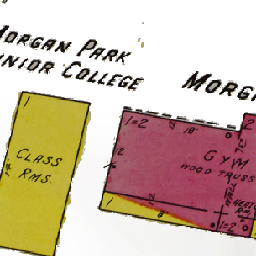 MORGAN PARK
JUNIOR COLLEGE
MORGA
1
CLASS
RMS.
1=2
18
2
GYM
WOOD TRUSS
2
1
8
1=2